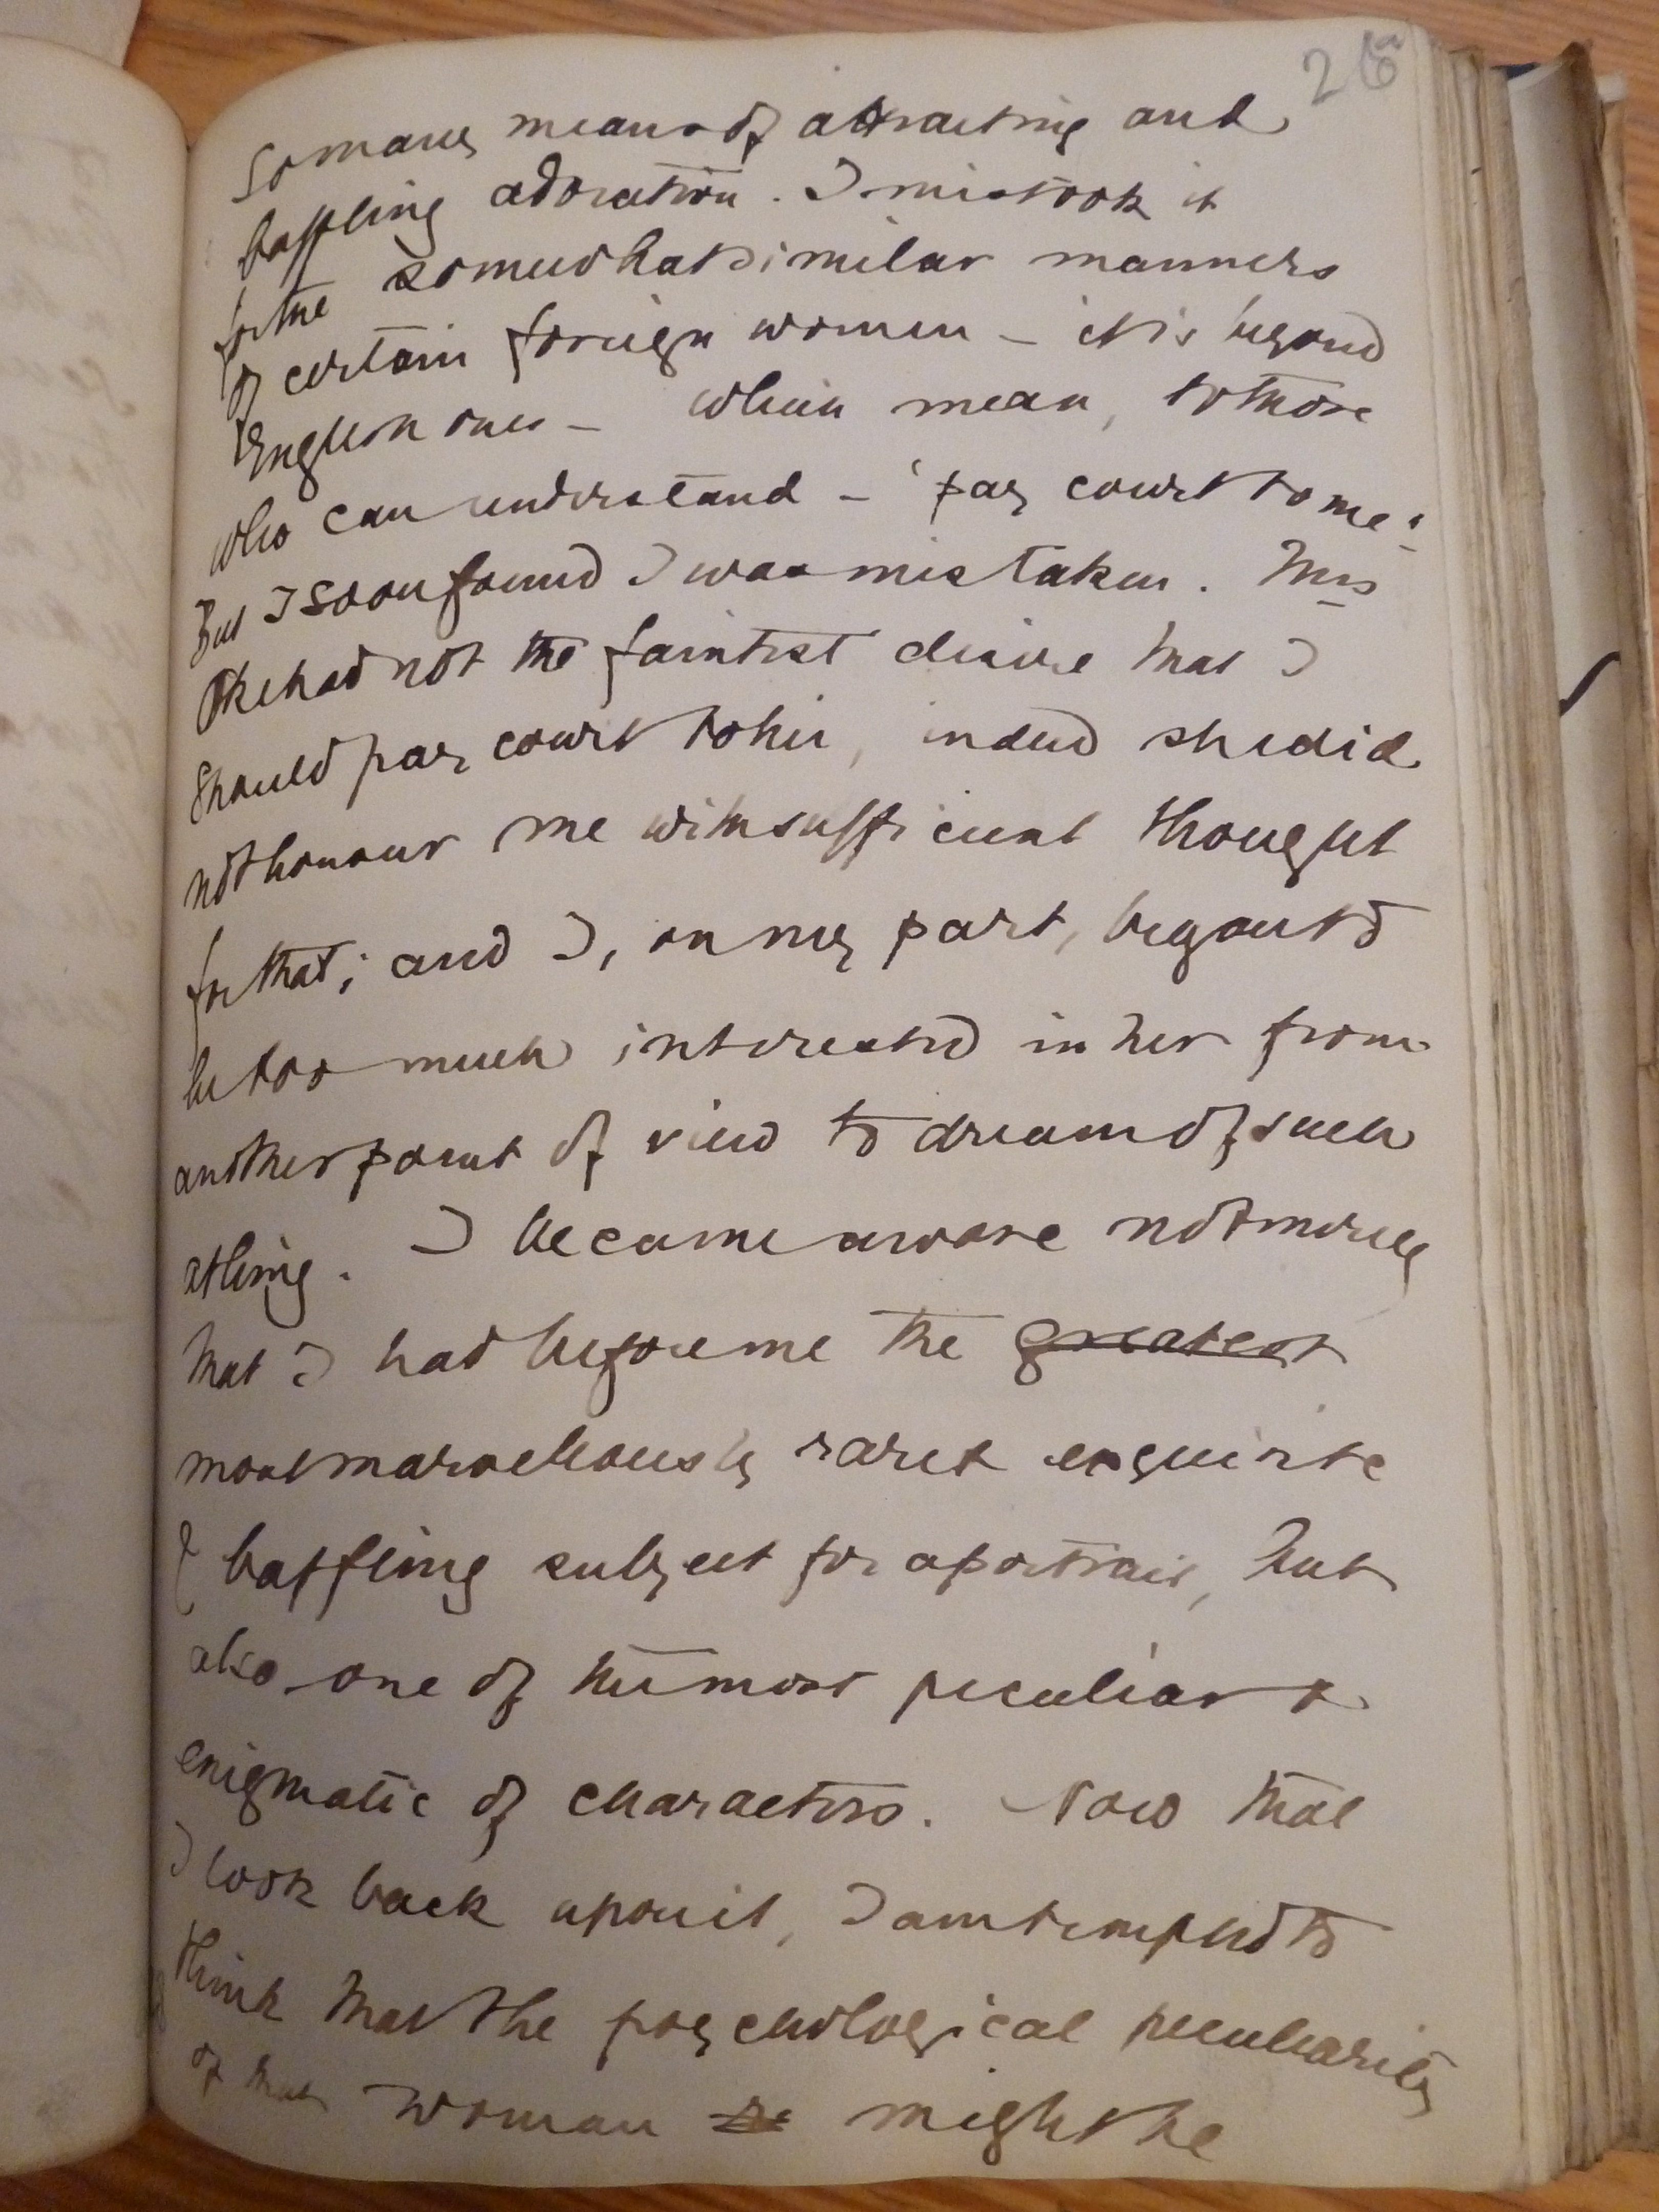 26
so many means of attracting and
baffling adoration. I mistook it
for the somewhat similar manners
of certain foreign women – it is beyond
English ones – which mean, to those
who can understand – 'pay court to me!'
But I soon found I was mistaken. Mrs
Oke had not the faintest desire that I
should pay court to her, indeed she did
not honour me with sufficient thought
for that; and I, on my part, began to
be too much interested in her from
another point of view to dream of such
a thing. I became aware not merely
that I had before me the greatest
most marvellously rare & exquisite
& baffling subject for a portrait, but
also one of the most peculiar &
enigmatic of characters. Now that
I look back upon it, I am tempted to
think that the psychological peculiarity
of that woman might be